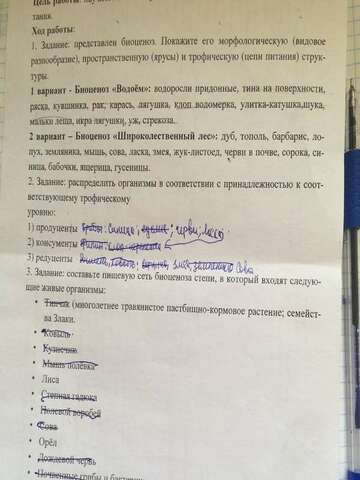 Цель работы:
тания.
Ход работы:
1. Задание: представлен биоценоз. Покажите его морфологическую (видовое
разнообразие), пространственную (ярусы) и трофическую (цепи питания) струк-
туры.
1 вариант - Биоценоз «Водоём»: водоросли придонные, тина на поверхности,
ряска, кувшинка, рак, карась, лягушка, клоп водомерка, улитка-катушка,щука,
мальки леща, икра лягушки, уж, стрекоза..
2 вариант – Биоценоз «Широколиственный лес»: дуб, тополь, барбарис, ло-
пух, земляника, мышь, сова, ласка, змея, жук-листоед, черви в почве, сорока, си-
ница, бабочки, ящерица, гусеницы.
2. Задание: распределить организмы в соответствии с принадлежностью к соот-
ветствующему трофическому
уровню:
1) продуценты
2) консументы
3) редуценты
3. Задание: составьте пищевую сеть биоценоза степи, в который входят следую-
щие живые организмы:
• Типчак (многолетнее травянистое пастбищно-кормовое растение; семейст-
ва Злаки.
• Ковыль
• Кузнечик
• Мышь полевка
• Лиса
• Степная гадюка
• Полевой воробей
• Сова
• Орёл
• Дождевой червь
• Почвенные грибы и бактерии